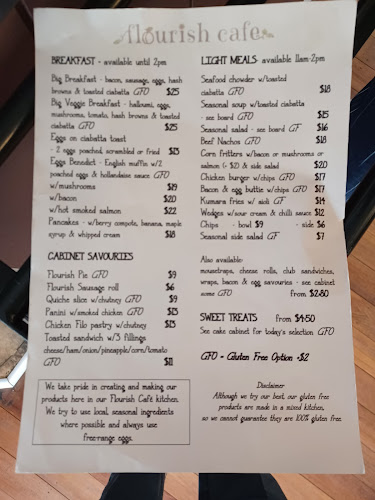 flourish cafe
BREAKFAST - available until 2pm
Big Breakfast - bacon, sausage, eggs, hash
browns & toasted ciabatta GFO $25
Big Veggie Breakfast - halloumi, eggs,
mushrooms, tomato, hash browns & toasted
ciabatta GFO $25
Eggs on ciabatta toast
- 2 eggs poached, scrambled or fried $13
Eggs Benedict - English muffin w/2
poached eggs & hollandaise sauce GFO
w/mushrooms $19
w/bacon $20
w/hot smoked salmon $22
Pancakes - w/berry compote, banana, maple
syrup & whipped cream $18
CABINET SAVOURIES
Flourish Pie GFO $9
Flourish Sausage roll $6
Quiche slice w/chutney GFO $9
Panini w/smoked chicken GFO $13
Chicken Filo pastry w/chutney $13
Toasted sandwich w/3 fillings
cheese/ham/onion/pineapple/corn/tomato
GFO $11
We take pride in creating and making our
products here in our Flourish Café kitchen.
We try to use local, seasonal ingredients
where possible and always use
free-range eggs.
LIGHT MEALS- available 11am-2pm
Seafood chowder w/toasted
ciabatta GFO $18
Seasonal soup w/toasted ciabatta
- see board GFO $15
Seasonal salad - see board GF $16
Beef Nachos GFO $18
Corn fritters w/bacon or mushrooms or
salmon (+ $2) & side salad $20
Chicken burger w/chips GFO $17
Bacon & egg buttie w/chips GFO $17
Kumara fries w/ aioli GF $14
Wedges w/sour cream & chilli sauce $12
Chips - bowl $9 - side $6
Seasonal side salad GF $7
Also available:
mousetraps, cheese rolls, club sandwiches,
wraps, bacon & egg savouries - see cabinet
some GFO from $2.80
SWEET TREATS from $4.50
See cake cabinet for today's selection GFO
GFO - Gluten Free Option +$2
Disclaimer
Although we try our best, our gluten free
products are made in a mixed kitchen,
so we cannot guarantee they are 100% gluten free.